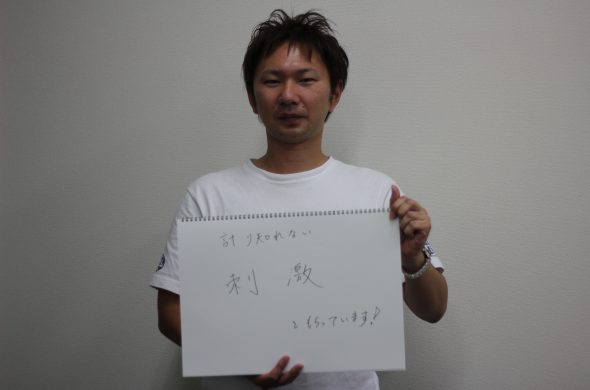 計り知れない
刺激
をもらっています!